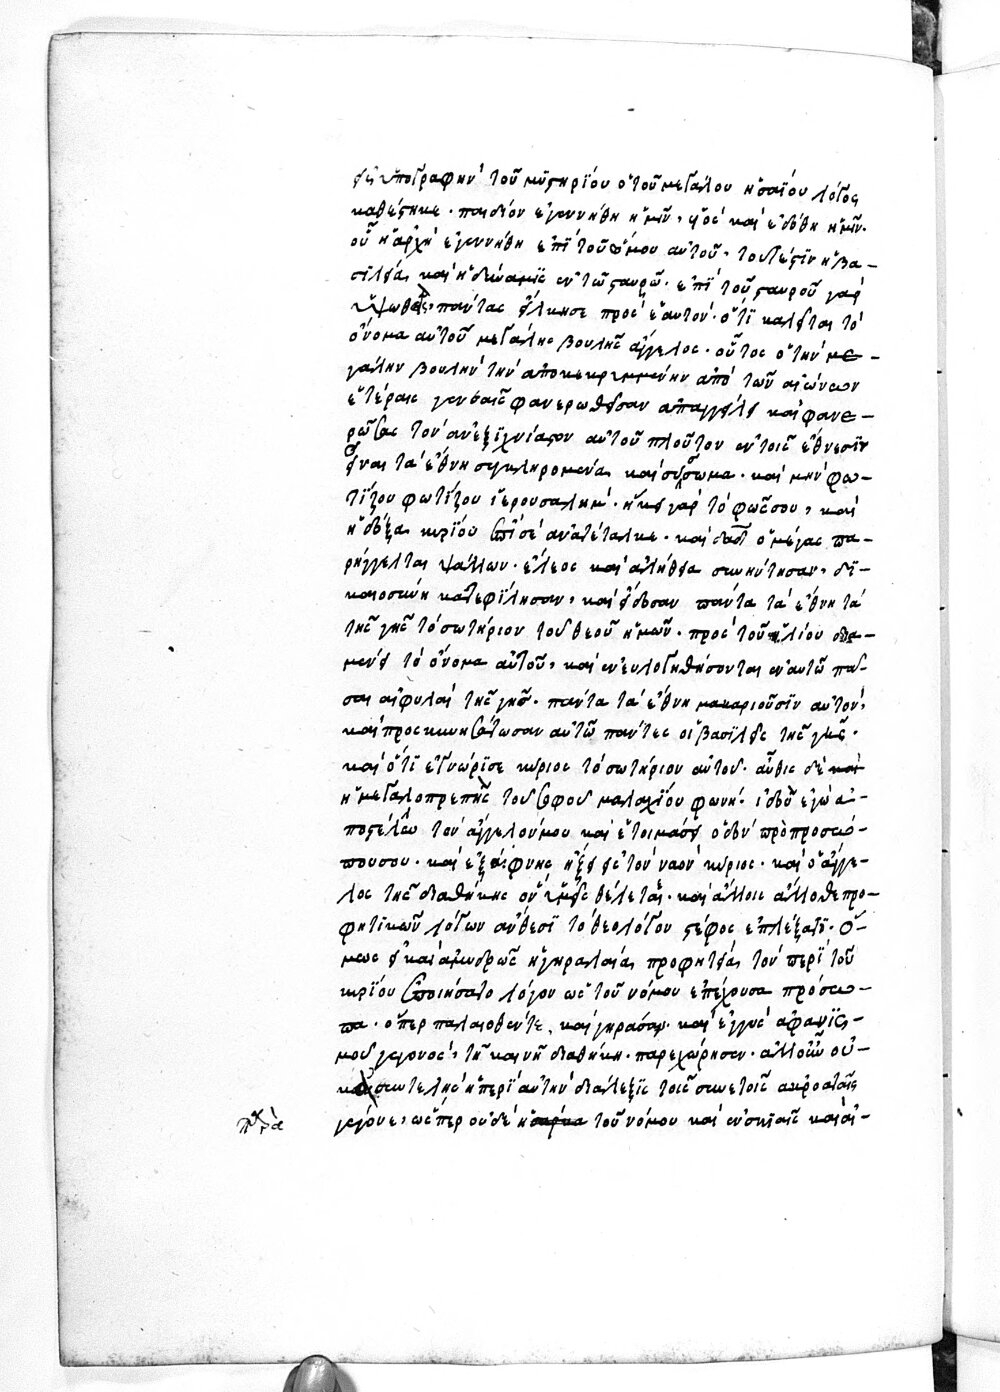 εἰς ὑπογραφὴν τοῦ μυστηρίου ὁ τοῦ μεγάλου ἡσαΐου λόγος
καθέστηκε· παιδίον ἐγεννήθη ἡμῖν, υἱὸς καὶ ἐδόθη ἡμῖν·
οὗ ἡ ἀρχὴ ἐγεννήθη ἐπὶ τοῦ ὤμου αὐτοῦ, τουτέστιν ἡ βα-
σιλεία, καὶ ἡ δύναμις ἐν τῷ σταυρῷ· ἐπὶ τοῦ σταυροῦ γὰρ
ὑψωθεὶς, πάντας εἵλκυσε πρὸς ἑαυτόν· ὅτι καλεῖται τὸ
ὄνομα αὐτοῦ μεγάλης βουλῆς ἄγγελος· οὗτος ὁ τὴν με-
γάλην βουλὴν τὴν ἀποκεκρυμμένην ἀπὸ τῶν αἰώνων
ἑτέραις γενεαῖς φανερωθεῖσαν ἀπαγγεῖλαι καὶ φανε-
ρῶσας τὸν ἀνεξιχνίαστον αὐτοῦ πλοῦτον ἐν τοῖς ἔθνεσιν
εἶναι τὰ ἔθνη συγκληρονόμα, καὶ σύσσωμα· καὶ μὴν φω-
τίζου φωτίζου ἱερουσαλήμ· ἥκει γὰρ τὸ φῶς σου, καὶ
ἡ δόξα κυρίου ἐπὶ σὲ ἀνατέταλκε· καὶ δαδ ὁ μέγας πα-
ρήγγελται ψάλλων· ἔλεος καὶ ἀλήθεια συνήντησαν, δι-
καιοσύνη κατεφίλησαν, καὶ εἴδοσαν πάντα τὰ ἔθνη τὰ
τῆς γῆς τὸ σωτήριον τοῦ θεοῦ ἡμῶν· πρὸ τοῦ ἡλίου δια-
μενεῖ τὸ ὄνομα αὐτοῦ, καὶ ἐνευλογηθήσονται ἐν αὐτῷ πᾶ-
σαι αἱ φυλαὶ τῆς γῆς· πάντα τὰ ἔθνη μακαριοῦσιν αὐτόν,
καὶ προσκυνησάτωσαν αὐτῷ πάντες οἱ βασιλεῖς τῆς γῆς·
καὶ ὅτι ἐγνώρισε κύριος τὸ σωτήριον αὐτοῦ· αὖθις δὲ καὶ
ἡ μεγαλοπρεπὴς τοῦ σοφοῦ μαλαχίου φωνή· ἰδοὺ ἐγὼ ἀ-
ποστέλλω τὸν ἄγγελόν μου καὶ ἑτοιμάσει ὁδὸν πρὸ προσώ-
που σου· καὶ ἐξαίφνης ἥξει εἰς τὸν ναὸν κύριος· καὶ ὁ ἄγγε-
λος τῆς διαθήκης ὃν ὑμεῖς θέλετε· καὶ ἄλλοις ἄλλοθε προ-
φητικῶν λόγων ἄνθεσι τὸ θεολόγου στέφος ἐπλέξατο· ὅ-
μως εἰ καὶ ἀμυδρῶς ἡ γηραλαία προφητεία τὸν περὶ τοῦ
κυρίου ἐποιήσατο λόγον ὡς τοῦ νόμου ἐπέχουσα πρόσω-
πα· ὅπερ παλαιωθὲν τε, καὶ γηράσαν· καὶ ἐγγὺς ἀφανισ-
μοῦ γεγονὸς, τῇ καινῇ διαθήκῃ· παρεχώρησεν· ἀλλ' οὖν οὐ-
κ ἀσυντελὴς ἡ περὶ αὐτὴν διάλεξις τοῖς συνετοῖς ἀκροαταῖς
γέγονε, ὥσπερ οὐδὲ ἡ σκηνὴ τοῦ νόμου καὶ ἐν σκιαῖς καὶ αἰ-